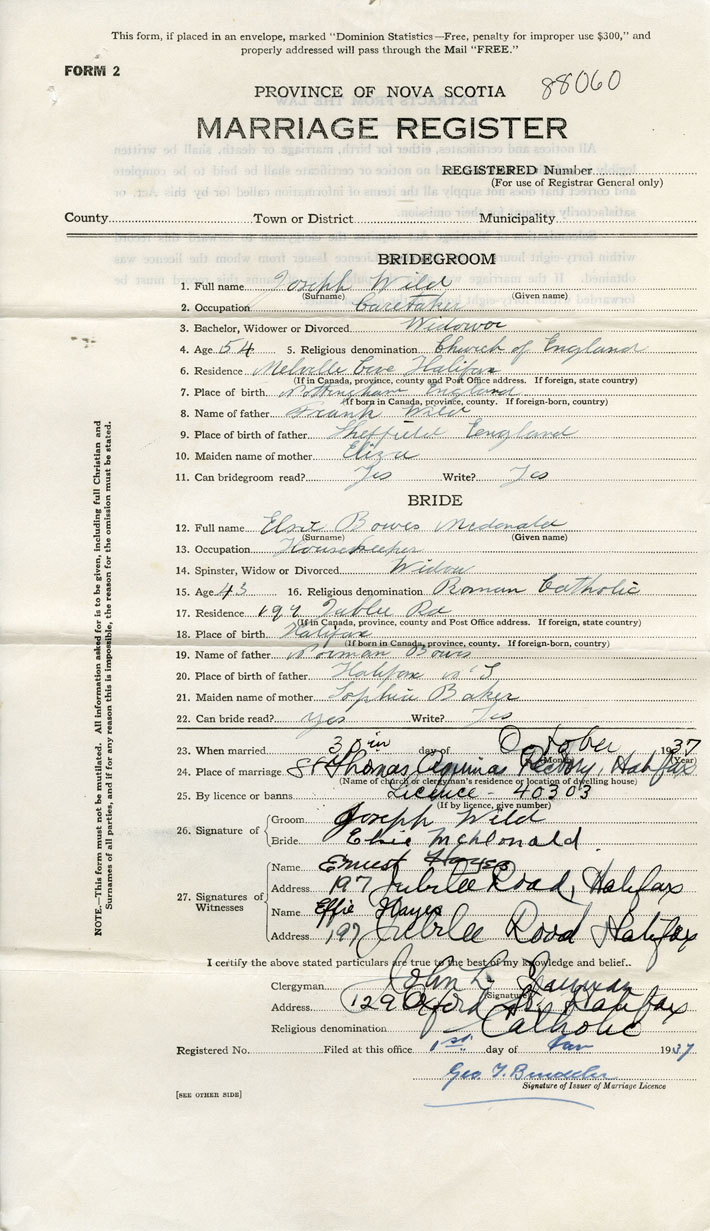 This form, if placed in an envelope, marked "Dominion Statistics—Free, penalty for improper use $300," and
properly addressed will pass through the Mail "FREE."
FORM 2
PROVINCE OF NOVA SCOTIA 88060
MARRIAGE REGISTER
REGISTERED Number
(For use of Registrar General only)
County Town or District Municipality
BRIDEGROOM
1. Full name Joseph Wild
(Surname) (Given name)
2. Occupation Caretaker
3. Bachelor, Widower or Divorced Widowor
4. Age 54 5. Religious denomination Church of England
6. Residence Melville Cove Halifax
(If in Canada, province, county and Post Office address. If foreign, state country)
7. Place of birth Nottingham England
(If born in Canada, province, county. If foreign-born, country)
8. Name of father Frank Wild
9. Place of birth of father Sheffield England
10. Maiden name of mother Eliza
11. Can bridegroom read? Yes Write? Yes
BRIDE
12. Full name Bowes Mcdonald
(Surname) (Given name)
13. Occupation Housekeeper
14. Spinster, Widow or Divorced Widow
15. Age 43 16. Religious denomination Roman Catholic
17. Residence 197 Rd
(If in Canada, province, county and Post Office address. If foreign, state country)
18. Place of birth Halifax
(If born in Canada, province, county. If foreign-born, country)
19. Name of father Norman Bows
20. Place of birth of father Halifax N S
21. Maiden name of mother Sophia Baker
22. Can bride read? yes Write? Yes
23. When married 30 day of October 1937
(Month) (Year)
24. Place of marriage St Thomas Aquinas Halifax
(Name of church or clergyman's residence or location of dwelling house)
25. By licence or banns Licence - 40303
(If by licence, give number)
26. Signature of Groom Joseph Wild
Bride Elsie McDonald
27. Signatures of Witnesses Name Ernest Hayes
Address 197 Jubilee Road, Halifax
Name Effie Hayes
Address 197 Jubilee Road Halifax
I certify the above stated particulars are true to the best of my knowledge and belief.
Clergyman John L.
(Signature)
Address 129 Oxford St. Halifax
Religious denomination Catholic
Registered No. Filed at this office 1st day of 1937
Geo. T.
Signature of Issuer of Marriage Licence
[SEE OTHER SIDE]
NOTE.—This form must not be mutilated. All information asked for is to be given, including full Christian and
Surnames of all parties, and if for any reason this is impossible, the reason for the omission must be stated.